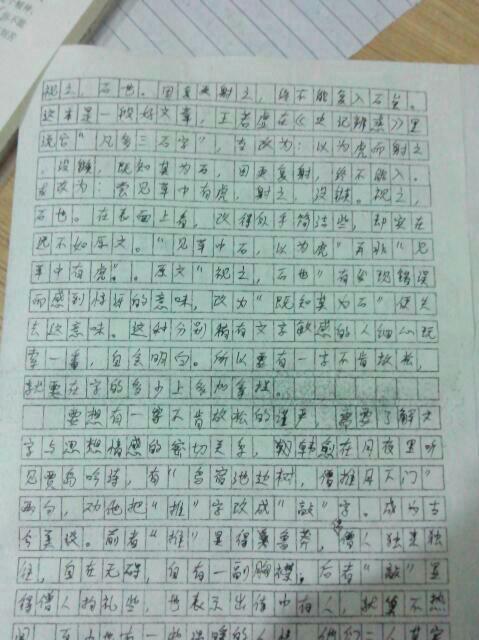 视之，石也。因复更射之，终不能复入石矣。
这本是一段好文章，王若虚在《史记辨惑》里
说它"凡多三石字"，当改为：以为虎而射之
，没镞，既知其为石，因更复射，终不能入。
或改为：尝见草中有虎，射之，没镞。视之，
石也。在表面上看，改得似乎简洁些，却实在
远不如原文。"见草中石，以为虎"并非"见
草中有虎"。原文"视之，石也"有发现错误
而感到惊讶的意味，改为"既知其为石"便失
去这意味。这对分别稍有文字敏感的人细心玩
索一番，自会明白。所以要有一字不肯放松，
就要在字的多少上多加
要想有一字不肯放松的谨严，需要了解文
字与思想情感的密切关系，韩愈在月夜里听
见贾岛吟诗，有"鸟宿池边树，僧推月下门"
两句，劝他把"推"字改成"敲"字。成为古
今美谈。前者"推"显得鲁莽，僧人独来独
往，自在无碍，自有一副胸襟。后者"敲"显
得僧人拘礼些，也表示出寺中有人，就算不热
闹，至少也有一些温暖的人